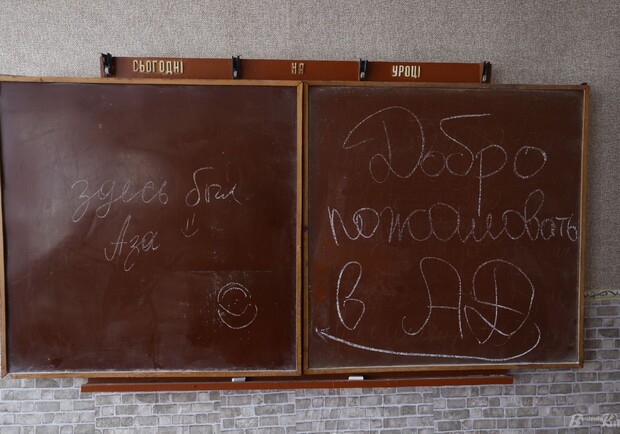 СЬОГОДНІ НА УРОЦІ
здесь был
Аза =)
Добро
пожаловать
в АД